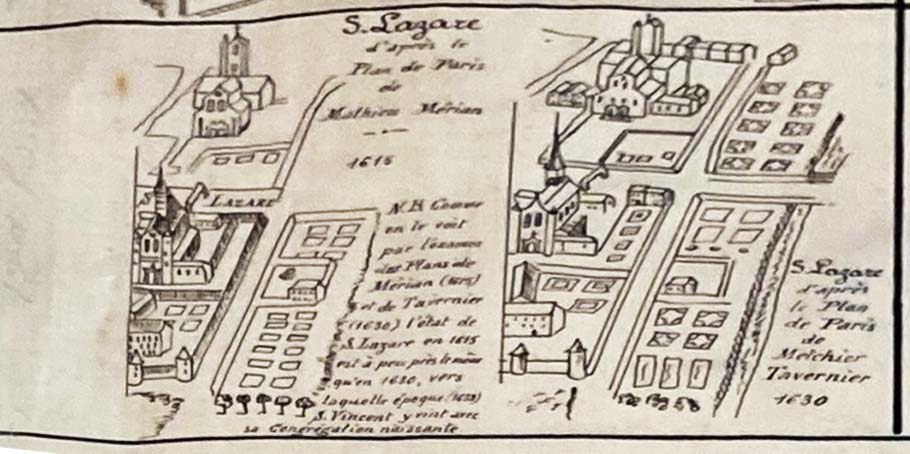 S. Lazare
d'après le
Plan de Paris
de
Mathieu Mérian
1615
LAZARE
N.B. Comme
on le voit
par l'examen
des Plans de
Mérian (1615)
et de Tavernier
(1630) l'état de
S. Lazare en 1615
est à peu près le même
qu'en 1630, vers
laquelle époque (1632)
S. Vincent y vint avec
sa Congrégation naissante
S. Lazare
d'après
le Plan
de Paris
de
Melchior
Tavernier
1630